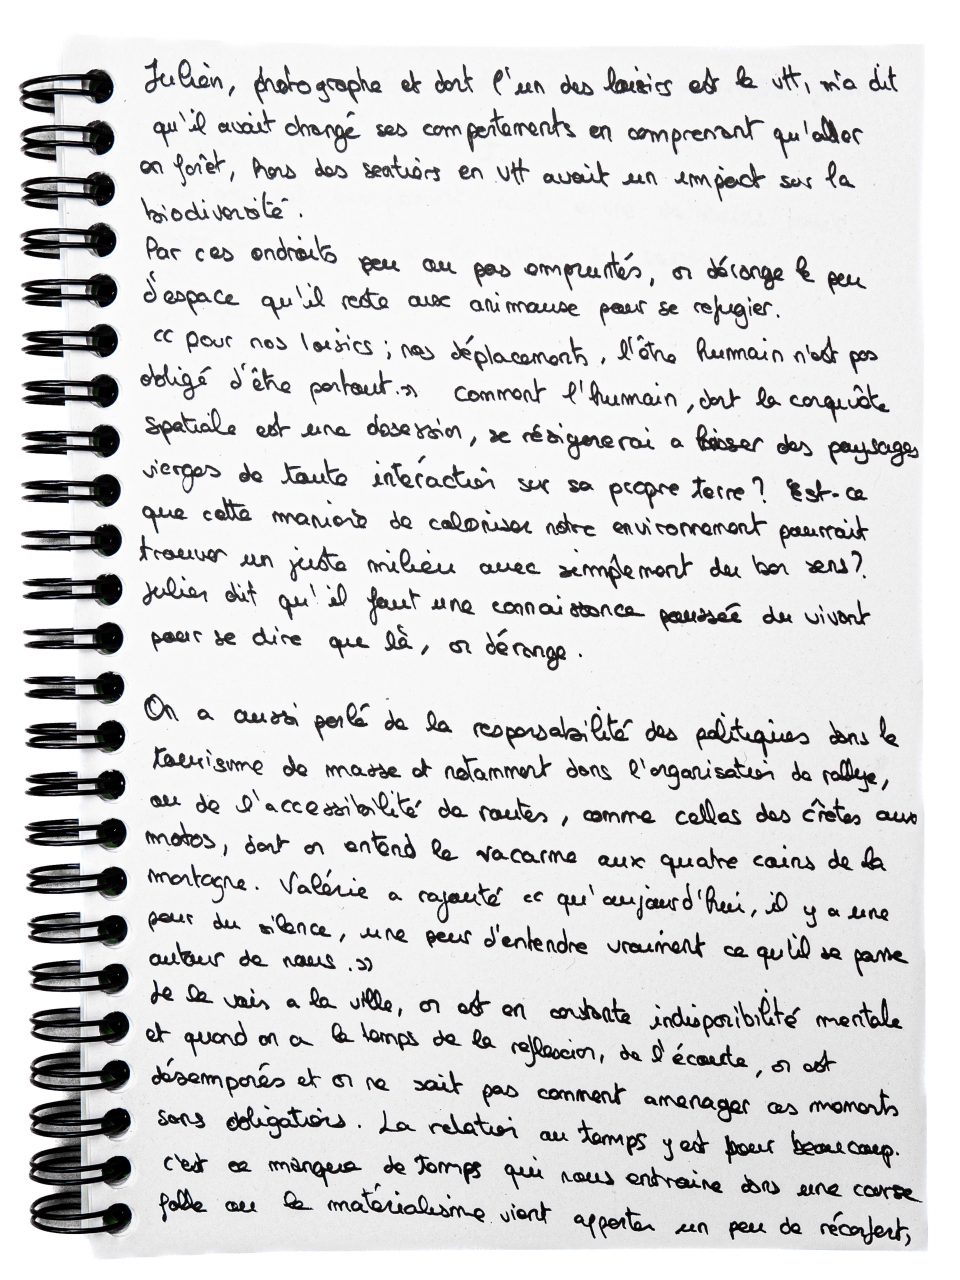 Julien, photographe et dont l'un des loisirs est le VTT, m'a dit
qu'il avait changé ses comportements en comprenant qu'aller
en forêt, hors des sentiers en VTT avait un impact sur la
biodiversité.
Par ces endroits peu ou pas empruntés, on dérange le peu
d'espace qu'il reste aux animause pour se refugier.
<< pour nos loisirs ; nos déplacements, l'être humain n'est pas
obligé d'être partout.>> Comment l'humain, dont la conquête
spatiale est une obsession, se résignerai a laisser des paysages
vierges de toute intéraction sur sa propre terre ? Est-ce
que cette manière de coloniser notre environnement pourrait
trouver un juste milieu avec simplement du bon sens ?
Julien dit qu'il faut une connaissance poussée du vivant
pour se dire que là, on dérange.
On a aussi parlé de la responsabilité des politiques dans le
tourisme de masse et notamment dans l'organisation de rallye,
ou de l'accessibilité de routes, comme celles des crêtes aux
motos, dont on entend le vacarme aux quatre coins de la
montagne. Valérie a rajouté << qu'aujourd'hui, il y a une
peur du silence, une peur d'entendre vraiment ce qu'il se passe
autour de nous.>>
Je le vois a la ville, on est en constante indisponibilité mentale
et quand on a le temps de la reflexion, de l'écoute, on est
désemparés et on ne sait pas comment amenager ces moments
sans obligations. La relation au temps y est pour beaucoup.
C'est ce manque de temps qui nous entraine dans une course
folle ou le matérialisme vient apporter un peu de réconfort,